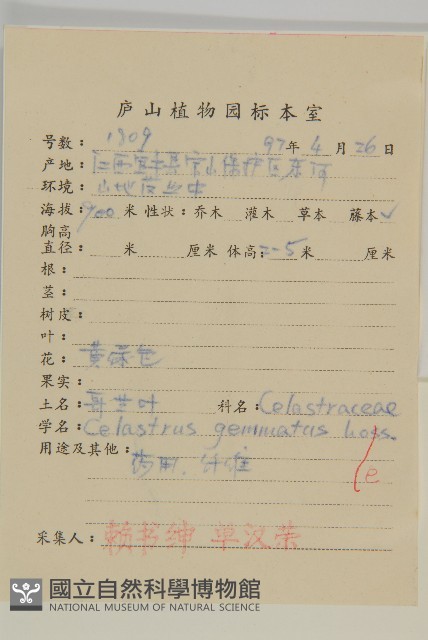 庐山植物园标本室
号数: 1809 97年 4 月 26 日
产地: 江西宜丰县官山保护区东河
环境: 山地
海拔: 900 米 性状: 乔木 灌木 草本 藤本✓
胸高
直径: 米 厘米 体高: 2-5 米 厘米
根:
茎:
树皮:
叶:
花: 黄绿色
果实:
土名: 哥兰叶 科名: Celastraceae
学名: Celastrus gemmatus Loes.
用途及其他: 药用、纤维
e
采集人: 赖书绅 单汉荣
國立自然科學博物館
NATIONAL MUSEUM OF NATURAL SCIENCE